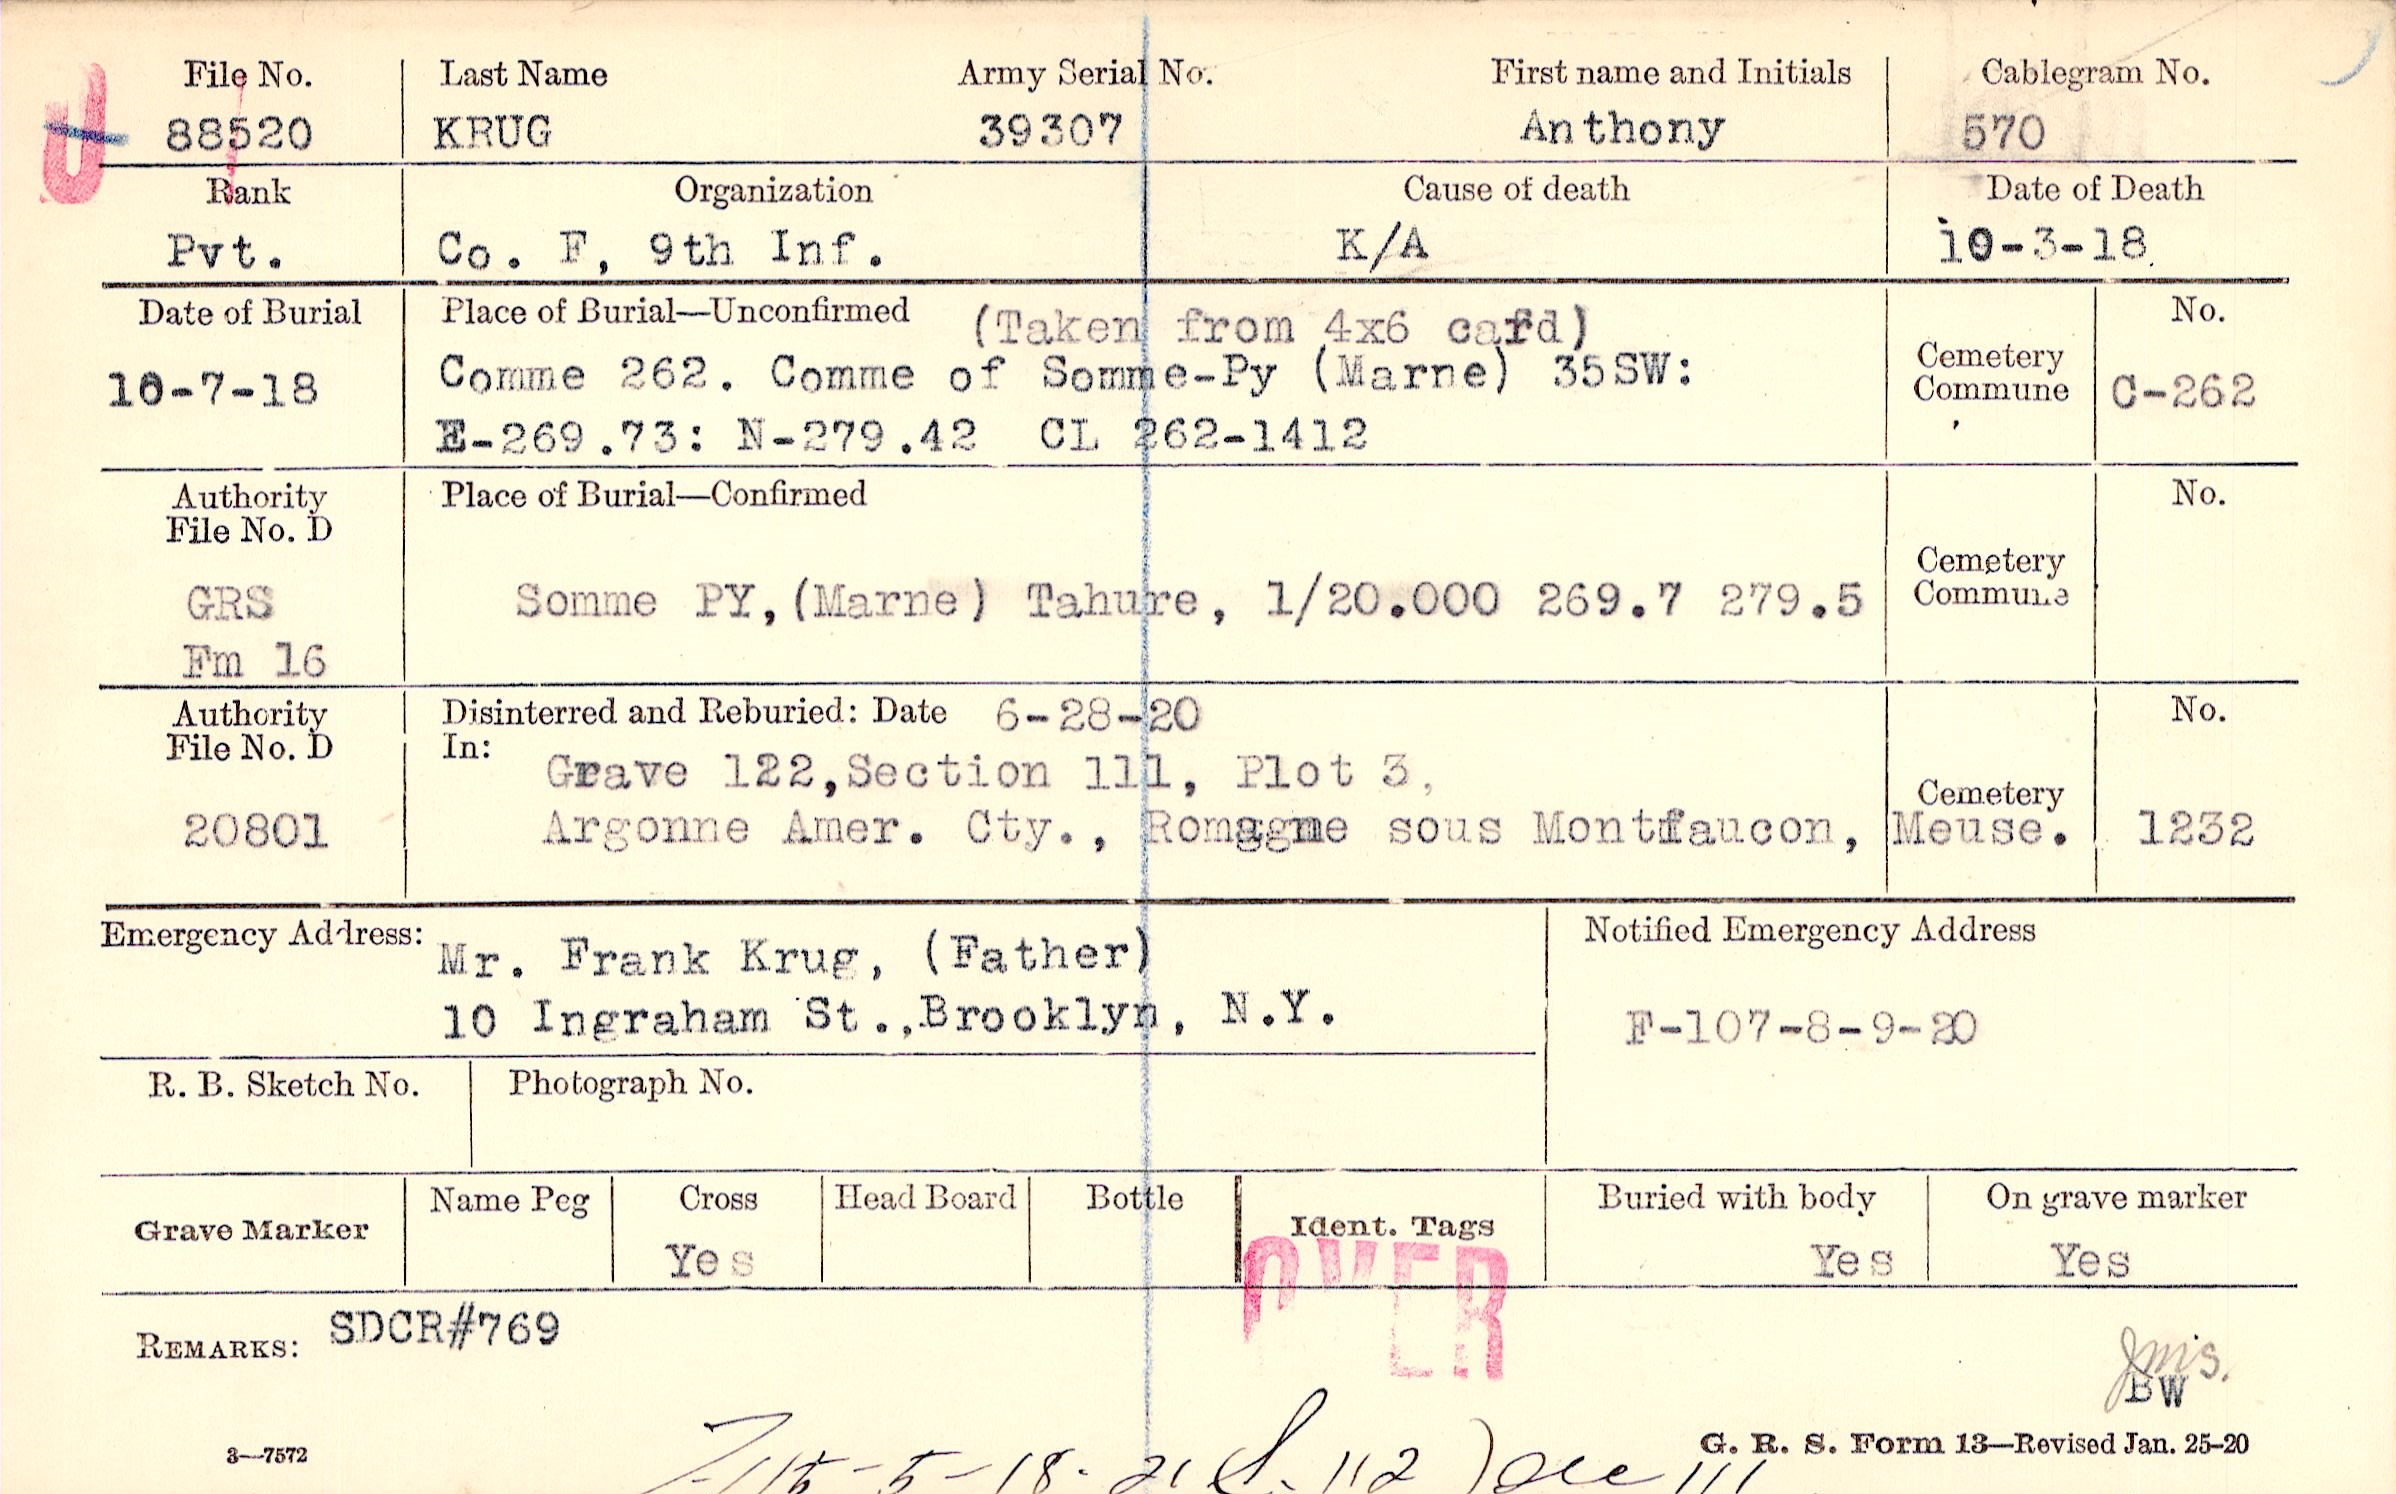 File No. Last Name Army Serial No. First name and Initials Cablegram No.
88520 KRUG 39307 Anthony 570
Rank Organization Cause of death Date of Death
Pvt. Co. F, 9th Inf. K/A 10-3-18
Date of Burial Place of Burial—Unconfirmed (Taken from 4x6 card) No.
10-7-18 Comme 262. Comme of Somme-Py (Marne) 35SW: Cemetery Commune C-262
E-269.73: N-279.42 CL 262-1412
Authority Place of Burial—Confirmed No.
File No. D
GRS Somme PY,(Marne) Tahure, 1/20.000 269.7 279.5 Cemetery Commune
Fm 16
Authority Disinterred and Reburied: Date 6-28-20 No.
File No. D In:
Grave 122,Section 111, Plot 3, Cemetery
20801 Argonne Amer. Cty., Romagne sous Montfaucon, Meuse. 1232
Emergency Address: Mr. Frank Krug, (Father) Notified Emergency Address
10 Ingraham St.,Brooklyn, N.Y. F-107-8-9-20
R. B. Sketch No. Photograph No.
Grave Marker Name Peg Cross Head Board Bottle Ident. Tags Buried with body On grave marker
Yes Yes Yes
OVER
REMARKS: SDCR#769
BW
3—7572 G. R. S. Form 13—Revised Jan. 25-20